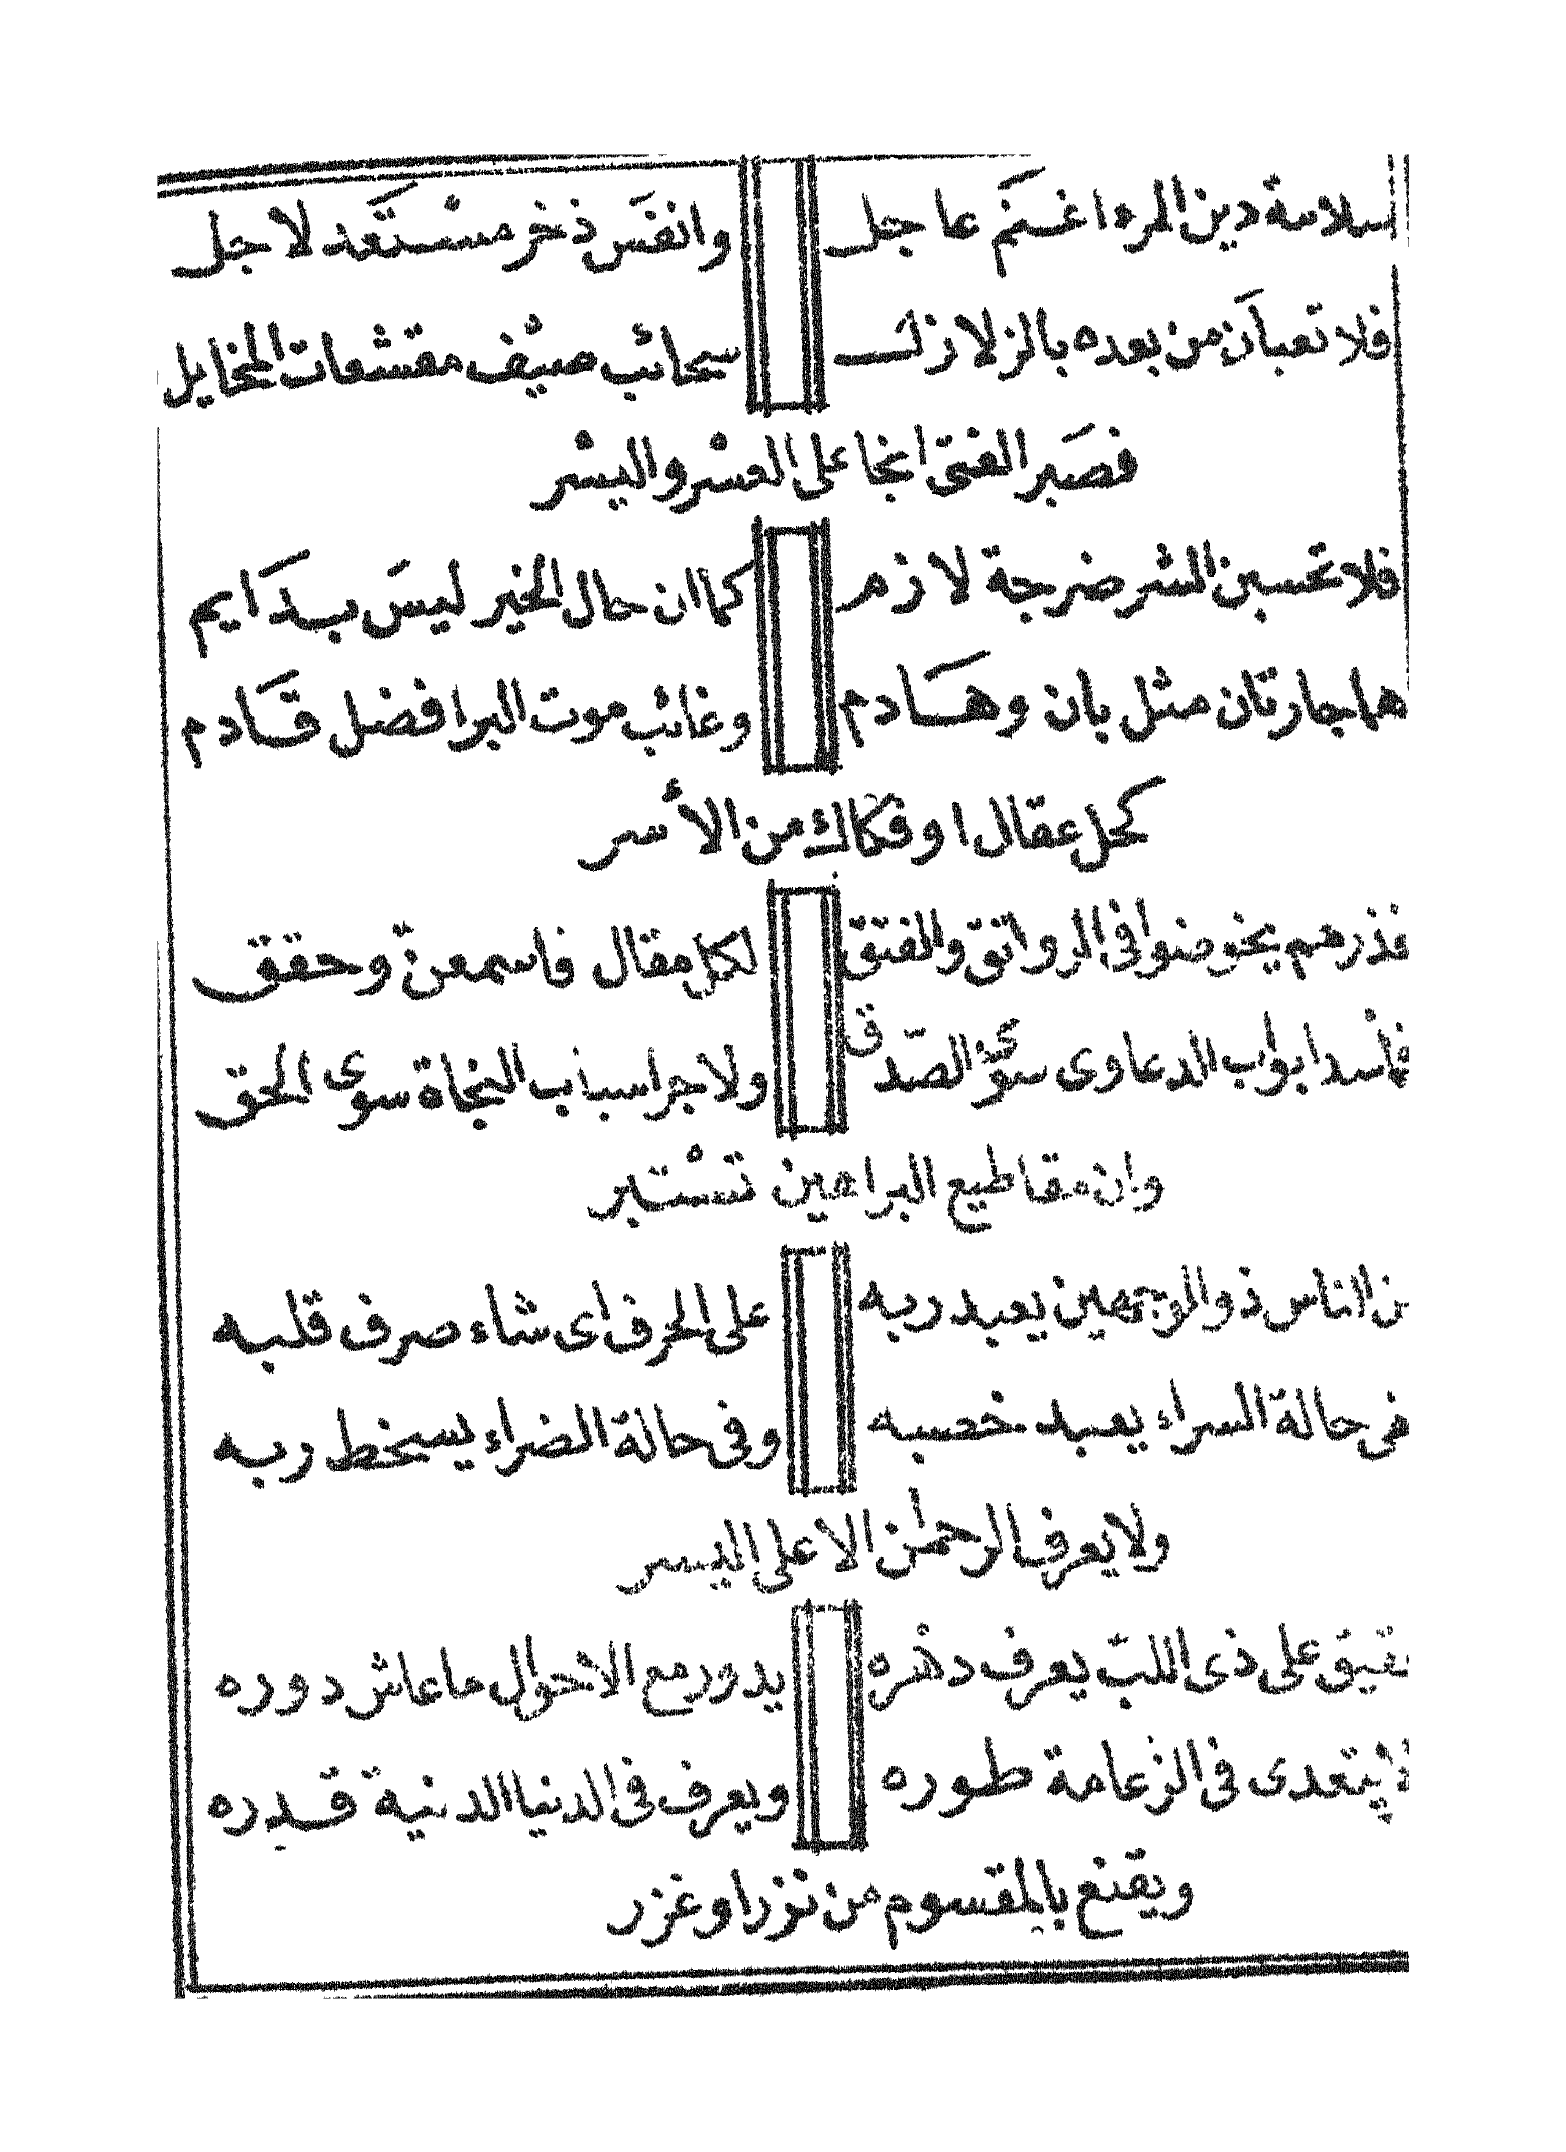 سلامة دين المرء اغنم عاجل وانفس ذخر مستعد لاجل
فلا تعبأن من بعده بالزلازل سحائب صيف مقشعات المخايل
فصبر الفتى انجا على العسر واليسر
فلا تحسبن الشر ضرجة لازم كما ان حال الخير ليس بدايم
هما جارتان مثل بان وهادم وغائب موت البر افضل قادم
كحل عقال او فكاك من الأسر
فذرهم يخوضوا في الرواتق والفتق لكل مقال فاسمعن وحقق
فما سد ابواب الدعاوى سوى الصدق ولا جر اسباب النجاة سوى الحق
وان مقاطيع البراهين تستبر
من الناس ذو الوجهين يعبد ربه على الحرف اى شاء صرف قلبه
ففى حالة السراء يعبد خصبه وفى حالة الضراء يسخط ربه
ولا يعرف الرحمن الا على اليسر
على ذى اللب يعرف دهره يدور مع الاحوال ما عاش دوره
يتعدى فى الزعامة طوره ويعرف فى الدنيا الدنية قدره
ويقنع بالمقسوم من نزر او غزر